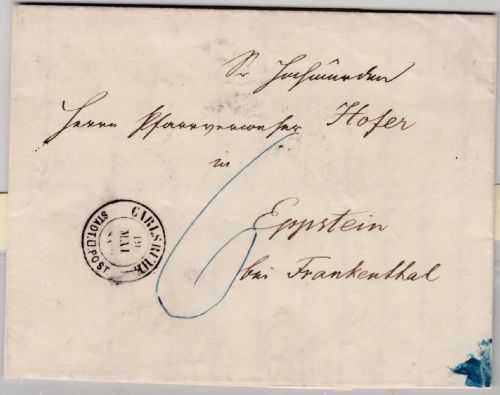 Sr Hochwürden
Herrn Pfarrverweser Hofer
in
Eppstein
bei Frankenthal
6
CARLSRUHE
19
MAI
STADTPOST